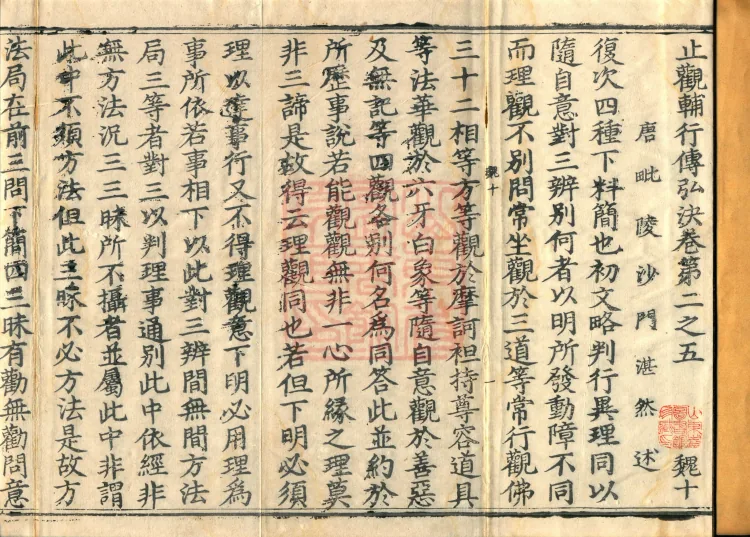 止觀輔行傳弘決卷第二之五
魏十
唐毗陵沙門湛然述
復次四種下料簡也初文略判行異理同以
隨自意對三辨別何者以明所發動障不同
而理觀不別問常坐觀於三道等常行觀佛
三十二相等方等觀於摩訶袒持尊容道具
等法華觀於六牙白象等隨自意觀於善惡
及無記等四觀各別何名爲同答此並約於
所歷事說若能觀觀無非一心所緣之理莫
非三諦是故得云理觀同也若但下明必須
理以達事行又不得理觀意下明必用理爲
事所依若事相下以此對三辨間無間方法
局三等者對三以判理事通別此中依經非
無方法況三三昧所不攝者並屬此中非謂
此中不須方法但此三昧不必方法是故方
法局在前三問下簡四三昧有勸無勸問意
魏十
一